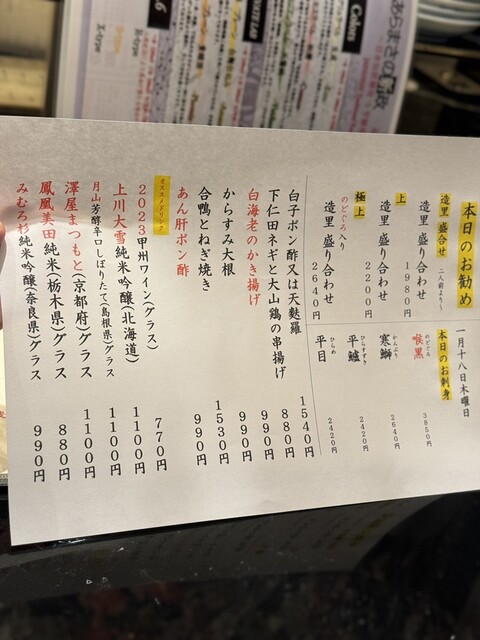 本日のお勧め
一月十八日木曜日
造里 盛合せ 二人前より〜
造里 盛り合わせ 1980円
上
造里 盛り合わせ 2200円
極上
のどぐろ入り
造里 盛り合わせ 2640円
本日のお刺身
のどぐろ
喉黒 3850円
かんぶり
寒鰤 2640円
ひらすずき
平鱸 2420円
ひらめ
平目 2420円
白子ポン酢又は天麩羅 1540円
下仁田ネギと大山鶏の串揚げ 880円
白海老のかき揚げ 990円
からすみ大根 990円
合鴨とねぎ焼き 1530円
あん肝ポン酢 990円
オススメドリンク
2023甲州ワイン(グラス) 770円
上川大雪純米吟醸(北海道) 1100円
月山芳醇辛口しぼりたて(島根県)グラス 1100円
澤屋まつもと(京都府)グラス 1100円
鳳凰美田純米(栃木県)グラス 880円
みむろ杉純米吟醸(奈良県)グラス 990円